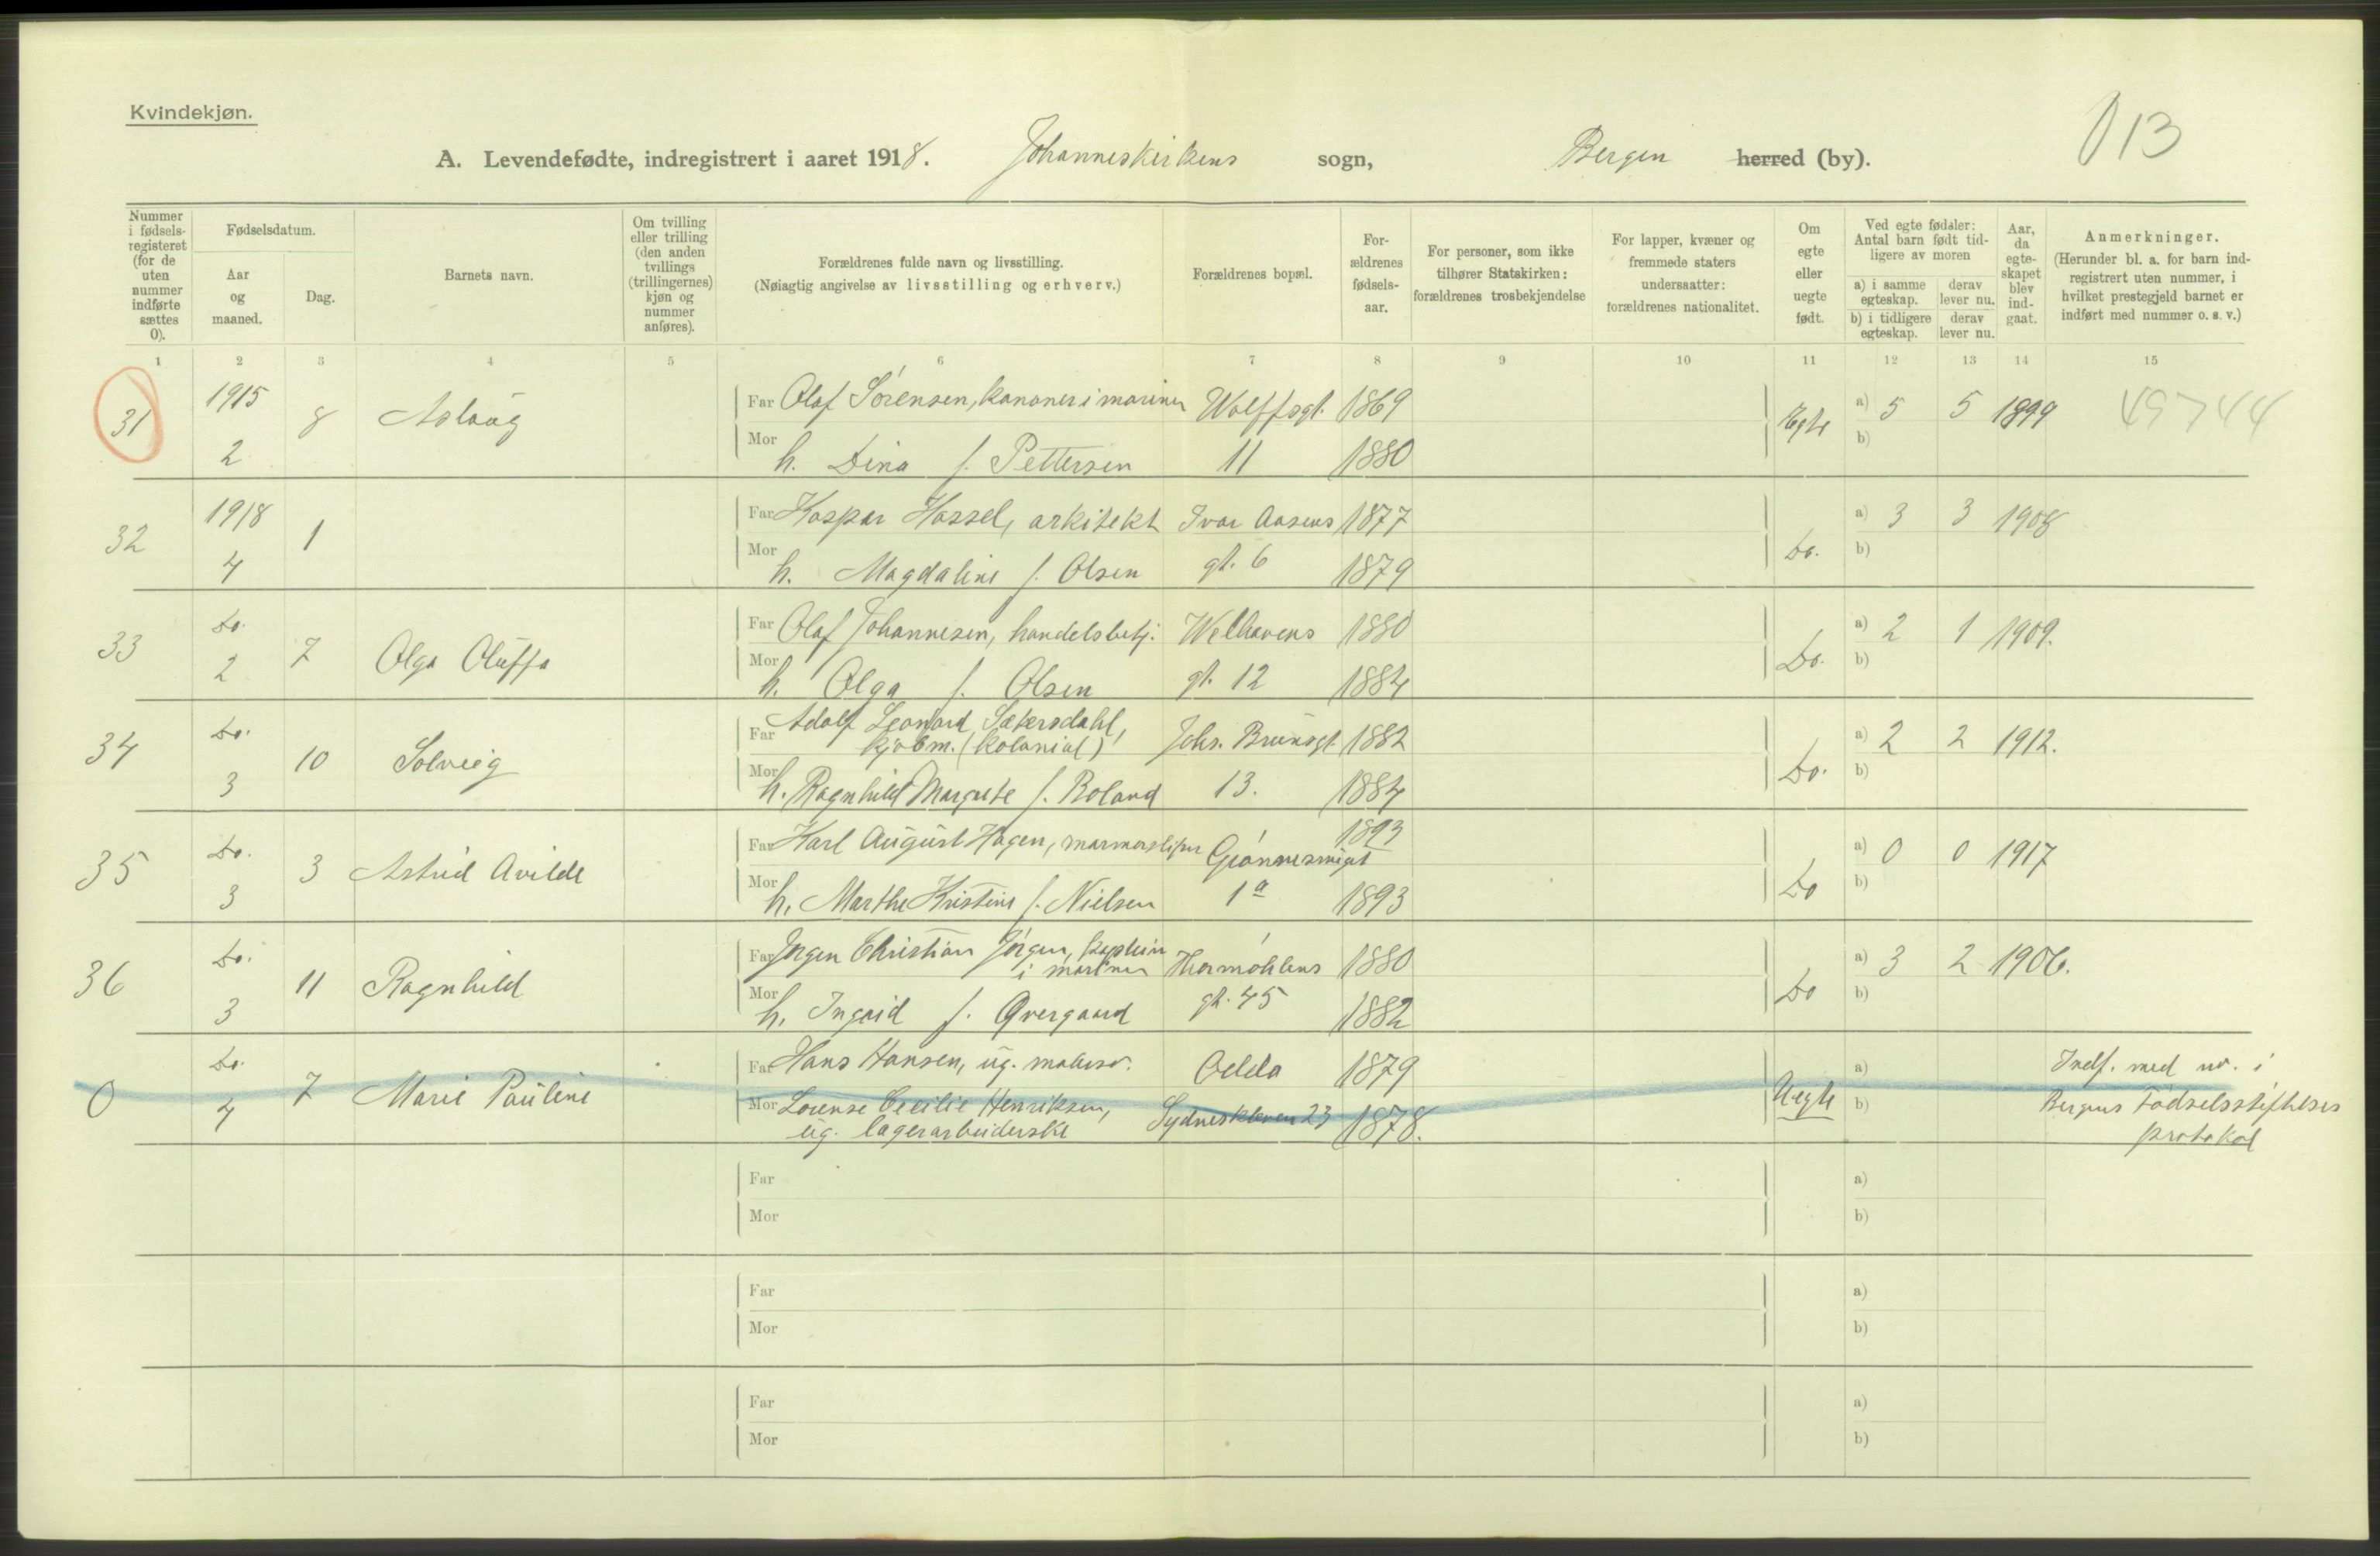 Kvindekjøn.
A. Levendefødte, indregistrert i aaret 1918. Johanneskirkens sogn, Bergen herred (by). 13
Nummer i fødsels-registeret (for de uten nummer indførte sættes 0).
Fødselsdatum.
Aar og maaned.
Dag.
Barnets navn.
Om tvilling eller trilling (den anden tvillings (trillingernes) kjøn og nummer anføres).
Forældrenes fulde navn og livsstilling.
(Nøiagtig angivelse av livsstilling og erhverv.)
Forældrenes bopæl.
For-ældrenes fødsels-aar.
For personer, som ikke tilhører Statskirken: forældrenes trosbekjendelse
For lapper, kvæner og fremmede staters undersaatter: forældrenes nationalitet.
Om egte eller uegte født.
Ved egte fødsler: Antal barn født tid-ligere av moren
a) i samme egteskap. derav lever nu.
b) i tidligere egteskap. derav lever nu.
Aar, da egte-skapet blev ind-gaat.
Anmerkninger.
(Herunder bl. a. for barn ind-registrert uten nummer, i hvilket prestegjeld barnet er indført med nummer o. s. v.)
1 2 3 4 5 6 7 8 9 10 11 12 13 14 15
31 1915 8 Aslaug Far Olaf Sörensen, kanoner i marinen Wolffsgt. 1869 Egte a) 5 5 1899 49744
2 Mor h. Dina f. Pettersen 11 1880 b)
32 1918 1 Far Kaspar Hassel, arkitekt Ivar Aasens 1877 Do. a) 3 3 1908
4 Mor h. Magdalene f. Olsen gt. 6 1879 b)
33 Do. 7 Olga Oluffa Far Olaf Johannesen, handelsbetj. Welhavens 1880 Do. a) 2 1 1909.
2 Mor h. Olga f. Olsen gt. 12 1884 b)
34 Do. 10 Solveig Far Adolf Leonard Sætersdahl,
kjöbm. (kolonial) Johs. Brunsgt. 1882 Do. a) 2 2 1912.
3 Mor h. Ragnhild Margrete f. Roland 13. 1884 b)
35 Do. 3 Astrid Avilde Far Karl August Hagen, marmorsliper 1893 Do a) 0 0 1917
3 Mor h. Marthe Kristine f. Nielsen 1a 1893 b)
36 Do. 11 Ragnhild Far Jörgen Christian Jörgen, kaptein
i marinen Hermöhlens 1880 Do a) 3 2 1906.
3 Mor h. Ingrid f. Overgaard gt. 45 1882 b)
0 Do. 7 Marie Pauline Far Hans Hansen, ug. malersv. Odda 1879 Uegte a) Indf. med nr. i
4 Mor Lorense Cecilie Henriksen, Sydneskleven 23 1878. b) Bergens Födselsstiftelses
ug. lagerarbeiderske protokol
Far a)
Mor b)
Far a)
Mor b)
Far a)
Mor b)